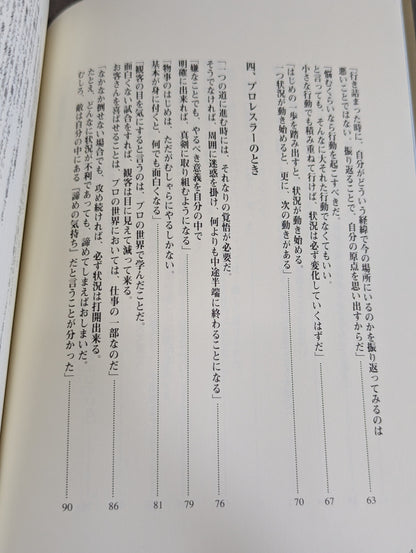 「行き詰まった時に、自分がどういう経緯で今の場所にいるのかを振り返ってみるのは
悪いことではない。振り返ることで、自分の原点を思い出すからだ」………63
「悩むくらいなら行動を起こすべきだ。
と言っても、そんなに大それた行動でなくてもいい。
小さな行動でも積み重ねて行けば、状況は必ず変化していくはずだ」………67
「はじめの一歩を踏み出すと、状況が動き始める。
一つ状況が動き始めると、更に、次の動きがある」………70
四、プロレスラーのとき
「一つの道に進む時には、それなりの覚悟が必要だ。
そうでなければ、周囲に迷惑を掛け、何よりも中途半端に終わることになる」………76
「嫌なことでも、やるべき意義を自分の中で
明確に出来れば、真剣に取り組むようになる」………79
「物事のはじめは、ただがむしゃらにやるしかない。
基本が身に付くと、何でも面白くなる」………81
「観客の目を気にすると言うのは、プロの世界で学んだことだ。
面白くない試合をすれば、観客は目に見えて減って来る。
お客さんを喜ばせることは、プロの世界においては、仕事の一部なのだ」………86
「なかなか倒せない場合でも、攻め続ければ、必ず状況は打開出来る。
たとえ、どんなに状況が不利であっても、諦めてしまえばおしまいだ。
むしろ、敵は自分の中にある『諦めの気持ち』だと言うことが分かった」………90